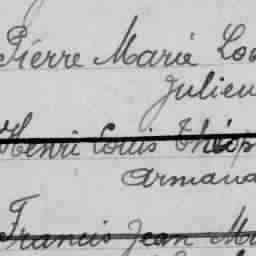 Pierre Marie Lou
Julien
Henri Louis Théop
Armand
Francis Jean Ma